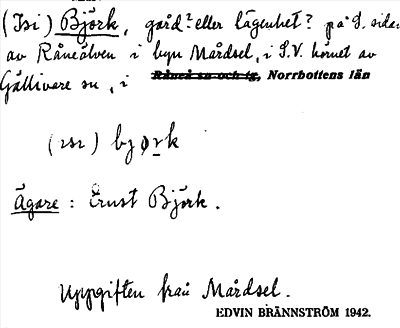 (Isi) Björk, gård? eller lägenhet? på S. sidan
av Råneälven i byn Mårdsel, i S.V. hörnet av
Gällivare sn, i Råneå sn och tg, Norrbottens län
(ısı) bjørk
Ägare : Ernst Björk.
Uppgiften från Mårdsel.
EDVIN BRÄNNSTRÖM 1942.